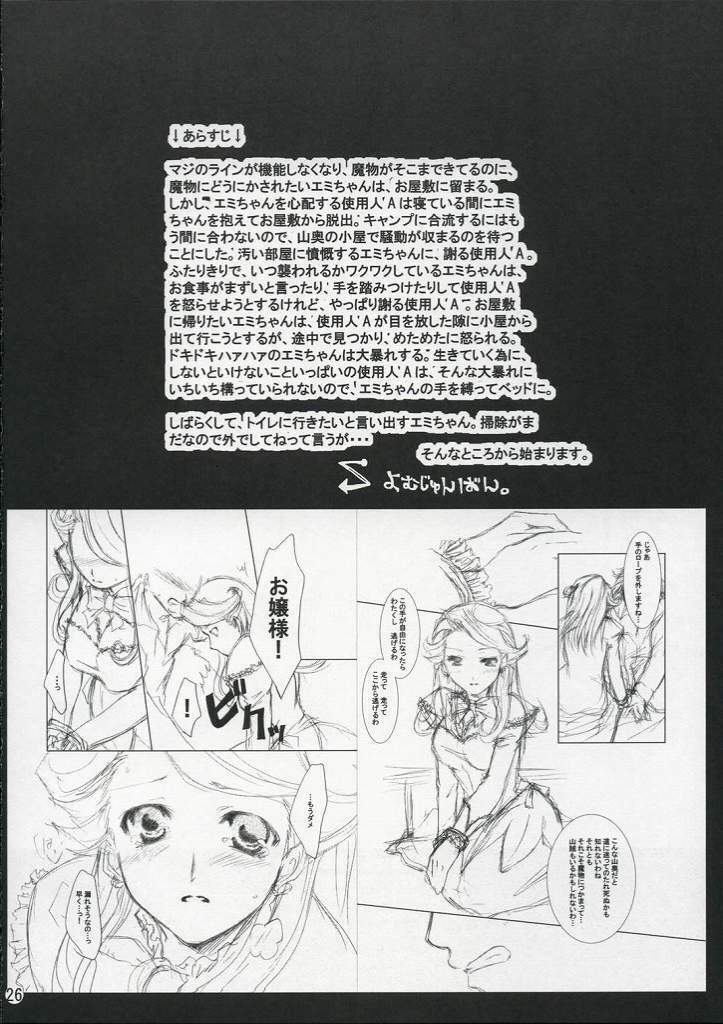 ↓あらすじ↓
マジのラインが機能しなくなり、魔物がそこまできてるのに、
魔物にどうにかされたいエミちゃんは、お屋敷に留まる。
しかし、エミちゃんを心配する使用人'Aは寝ている間にエミ
ちゃんを抱えてお屋敷から脱出。キャンプに合流するにはも
う間に合わないので、山奥の小屋で騒動が収まるのを待つ
ことにした。汚い部屋に憤慨するエミちゃんに、謝る使用人'A。
ふたりきりで、いつ襲われるかワクワクしているエミちゃんは、
お食事がまずいと言ったり、手を踏みつけたりして使用人'A
を怒らせようとするけれど、やっぱり謝る使用人'A。お屋敷
に帰りたいエミちゃんは、使用人'Aが目を放した隙に小屋から
出て行こうとするが、途中で見つかり、めためたに怒られる。
ドキドキハァハァのエミちゃんは大暴れする。生きていく為に、
しないといけないこといっぱいの使用人'Aは、そんな大暴れに
いちいち構っていられないので、エミちゃんの手を縛ってベッドに。
しばらくして、トイレに行きたいと言い出すエミちゃん。掃除がま
だなので外でしてねって言うが・・・
そんなところから始まります。
よむじゅんばん。
じゃあ
手のロープを外しますね…
この手が自由になったら
わたくし 逃げるわ
走って 走って
ここから逃げるわ
こんな山奥だと
道に迷ってのたれ死ぬかも
知れないわね
それとも
それこそ魔物につかまって…
山賊もいるかもしれないわ…
お嬢様！
ビクッ
！
…っ
…もうダメ
漏れそうなの…っ
早く…っ！
26